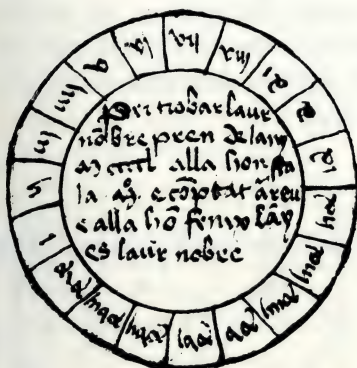 Per trobar laur
nõbre pren de lany
m cccc l alla hon sta
la aỹ. e cõptat areu
e alla hõ fenix lãy
es laur nobre
i
ij
iij
iiij
v
vi
vii
viii
ix
x
xi
xij
xiij
xiiij
xv
xvi
xvij
xviij
xix